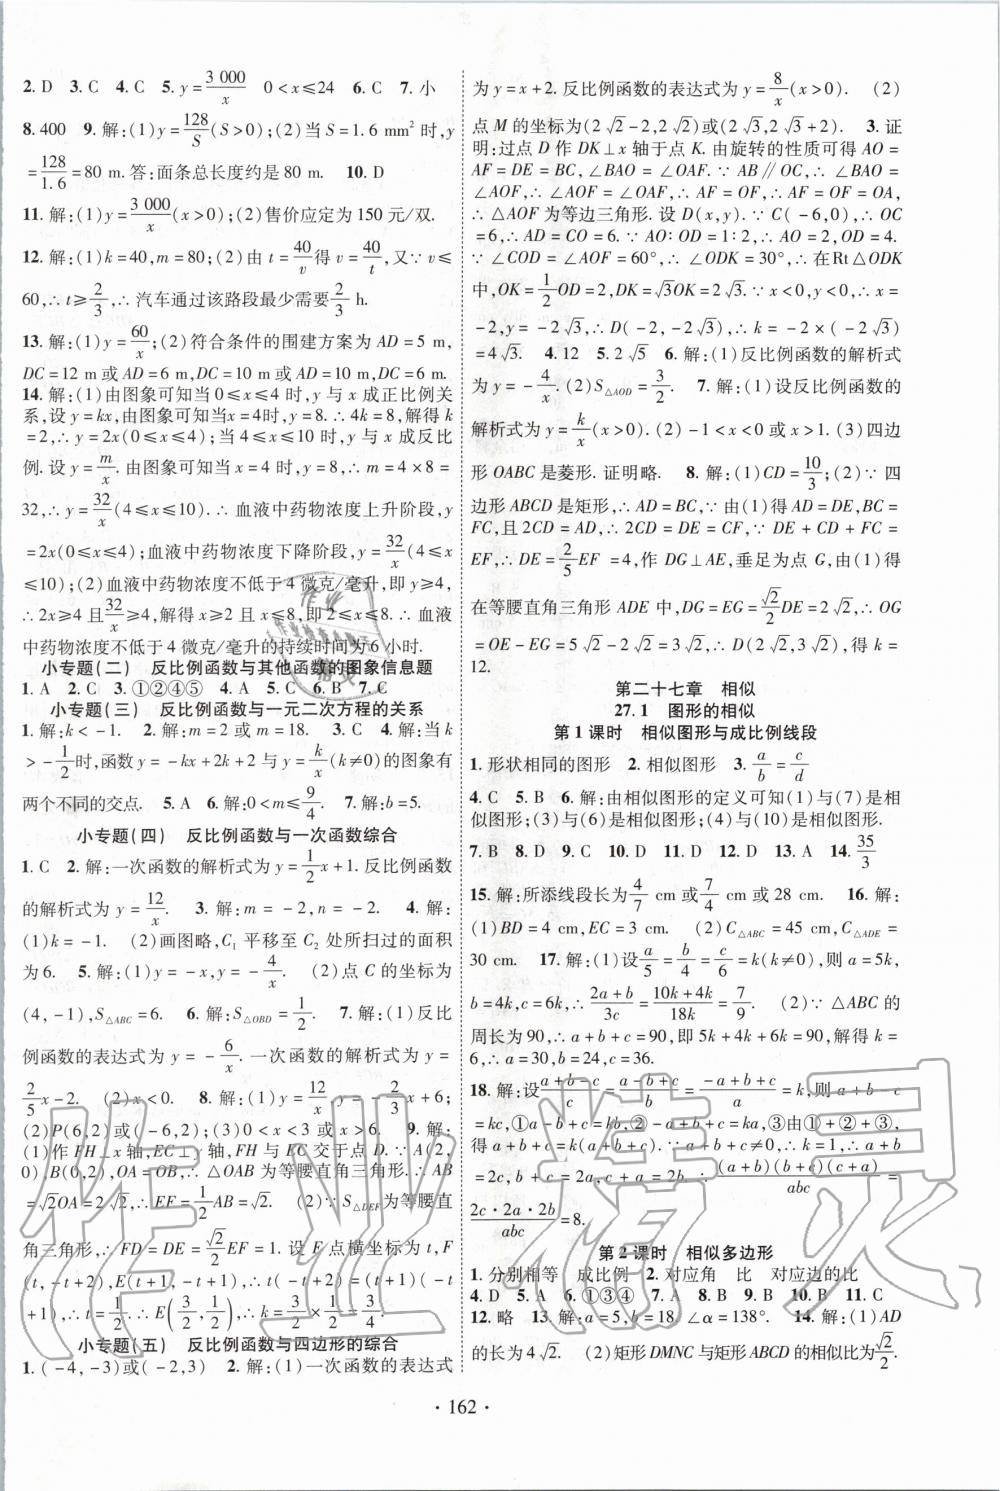 2. D 3. C 4. C 5. y=3 000/x 0<x≤24 6. C 7. 小
8. 400 9. 解:(1)y=128/S(S>0);(2)当 S=1.6 mm²时,y
=128/1.6=80 m. 答:面条总长度约是 80 m. 10. D
11. 解:(1)y=3 000/x(x>0);(2)售价应定为 150 元/双.
12. 解:(1)k=40,m=80;(2)由 t=40/v得 v=40/t,又∵v≤
60,∴t≥2/3,∴汽车通过该路段最少需要2/3 h.
13. 解:(1)y=60/x;(2)符合条件的围建方案为 AD=5 m,
DC=12 m 或 AD=6 m,DC=10 m 或 AD=10 m,DC=6 m.
14. 解:(1)由图象可知当 0≤x≤4 时,y 与 x 成正比例关
系,设 y=kx,由图象可知当 x=4时,y=8.∴4k=8,解得 k
=2,∴y=2x(0≤x≤4);当 4≤x≤10 时,y 与 x 成反比
例. 设 y=m/x. 由图象可知当 x=4 时,y=8.∴m=4×8=
32,∴y=32/x(4≤x≤10).∴血液中药物浓度上升阶段,y
=2x(0≤x≤4);血液中药物浓度下降阶段,y=32/x(4≤x
≤10);(2)血液中药物浓度不低于 4 微克/毫升,即 y≥4,
∴2x≥4 且32/x≥4,解得 x≥2 且 x≤8,即 2≤x≤8.∴血液
中药物浓度不低于 4 微克/毫升的持续时间为 6 小时.
小专题(二) 反比例函数与其他函数的图象信息题
1. A 2. C 3. ①②④⑤ 4. A 5. C 6. B 7. C
小专题(三) 反比例函数与一元二次方程的关系
1. 解:k<-1. 2. 解:m=2 或 m=18. 3. 解:C 4. 解:当 k
>-1/2时,函数 y=-kx+2k+2 与 y=k/x(k≠0)的图象有
两个不同的交点. 5. A 6. 解:0<m≤9/4. 7. 解:b=5.
小专题(四) 反比例函数与一次函数综合
1. C 2. 解:一次函数的解析式为 y=1/2x+1. 反比例函数
的解析式为 y=12/x. 3. 解:m=-2,n=-2. 4. 解:
(1)k=-1. (2)画图略,C₁ 平移至 C₂ 处所扫过的面积
为6. 5. 解:(1)y=-x,y=-4/x. (2)点 C 的坐标为
(4,-1),S△ABC=6. 6. 解:S△OBD=1/2. 7. 解:(1)反比
例函数的表达式为 y=-6/x. 一次函数的解析式为 y=
2/5x-2. (2)x<0. 8. 解:(1)y=12/x y=-2/3x+6;
(2)P(6,2)或(-6,2);(3)0<x<3 或 x>6. 9. 解:
(1)作 FH⊥x 轴,EC⊥y 轴,FH 与 EC 交于点 D.∵A(2,
0),B(0,2),OA=OB,∴△OAB 为等腰直角三角形.∴AB
=√2OA=2√2,∴EF=1/2AB=√2. (2)∵S△DEF为等腰直
角三角形,∴FD=DE=√2/2EF=1. 设 F 点横坐标为 t,F
(t,-t+2),E(t+1,-t+1),∴t(-t+2)=(t+1)(-t+
1),∴t=1/2.∴E(3/2,1/2),∴k=3/2×1/2=3/4.
小专题(五) 反比例函数与四边形的综合
1. (-4,-3)或(-2,3) 2. 解:(1)一次函数的表达式
为 y=x+2. 反比例函数的表达式为 y=8/x(x>0). (2)
点 M 的坐标为(2√2-2,2√2)或(2√3,2√3+2). 3. 证
明:过点 D 作 DK⊥x 轴于点 K. 由旋转的性质可得 AO=
AF=DE=BC,∠BAO=∠OAF.∵AB∥OC,∴∠BAO=
∠AOF,∴∠AOF=∠OAF,∴AF=OF,∴AF=OF=OA,
∴△AOF 为等边三角形. 设 D(x,y).∵C(-6,0),∴OC
=6,∴AD=CO=6.∵AO∶OD=1∶2,∴AO=2,OD=4.
∵∠COD=∠AOF=60°,∴∠ODK=30°,∴在 Rt△ODK
中,OK=1/2OD=2,DK=√3OK=2√3.∵k>0,∴x=
-2,y=-2√3,∴D(-2,-2√3),∴k=-2×(-2√3)
=4√3. 4. 12 5. 2√5 6. 解:(1)反比例函数的解析式
为 y=-4/x. (2)S△AOD=3/2. 7. 解:(1)设反比例函数的
解析式为 y=k/x(x>0). (2)-1<x<0 或 x>1. (3)四边
形 OABC 是菱形. 证明略. 8. 解:(1)CD=10/3;(2)∵四
边形 ABCD 是矩形,∴AD=BC,∵由(1)得 AD=DE,BC=
FC,且 2CD=5AD,∴2CD=5DE=5CF,∵DE+CD+FC=
EF,∴DE=2/5EF=4,作 DG⊥AE,垂足为点 G,由(1)得
在等腰直角三角形 ADE 中,DG=EG=√2/2DE=2√2,∴OG
=OE-EG=5√2-2√2=3√2,∴D(3√2,2√2),∴k=
12.
第二十七章 相似
27.1 图形的相似
第 1 课时 相似图形与成比例线段
1. 形状相同的图形 2. 相似图形 3. a/b=c/d
4. C 5. B 6. 解:由相似图形的定义可知(1)与(7)是相
似图形;(3)与(6)是相似图形;(4)与(10)是相似图形.
7. B 8. D 9. C 10. D 11. D 12. D 13. A 14. 35/3
15. 解:所添线段长为4/7 cm 或7/4 cm 或 28 cm. 16. 解:
(1)BD=4 cm,EC=3 cm. (2)C△ABC=45 cm,C△ADE=
30 cm. 17. 解:(1)设a/5=b/4=c/6=k(k≠0),∴a=5k,
b=4k,c=6k,∴2a+b/3c=10k+4k/18k=7/9. (2)∵△ABC 的
周长为 90,∴a+b+c=90,即 5k+4k+6k=90,解得 k=
6,∴a=30,b=24,c=36.
18. 解:设a+b-c/c=a-b+c/b=-a+b+c/a=k,则 a+b-c
=kc,①a-b+c=kb,②-a+b+c=ka,③由①+②+③
得 a+b+c=k(a+b+c).∵a+b+c≠0,∴k=1,∴a+b
=2c,b+c=2a,c+a=2b.∴(a+b)(b+c)(c+a)/abc=
2c·2a·2b/abc=8.
第 2 课时 相似多边形
1. 分别相等 成比例 2. 对应角 比 对应边的比
4. D 5. D 6. ①③④ 7. A 8. B 9. B 10. B 11. C
12. 略 13. 解:a=5,b=18,∠α=138°. 14. 解:(1)AD
的长为 4√2. (2)矩形 DMNC 与矩形 ABCD 的相似比为√2/2.
·162·
作业精灵